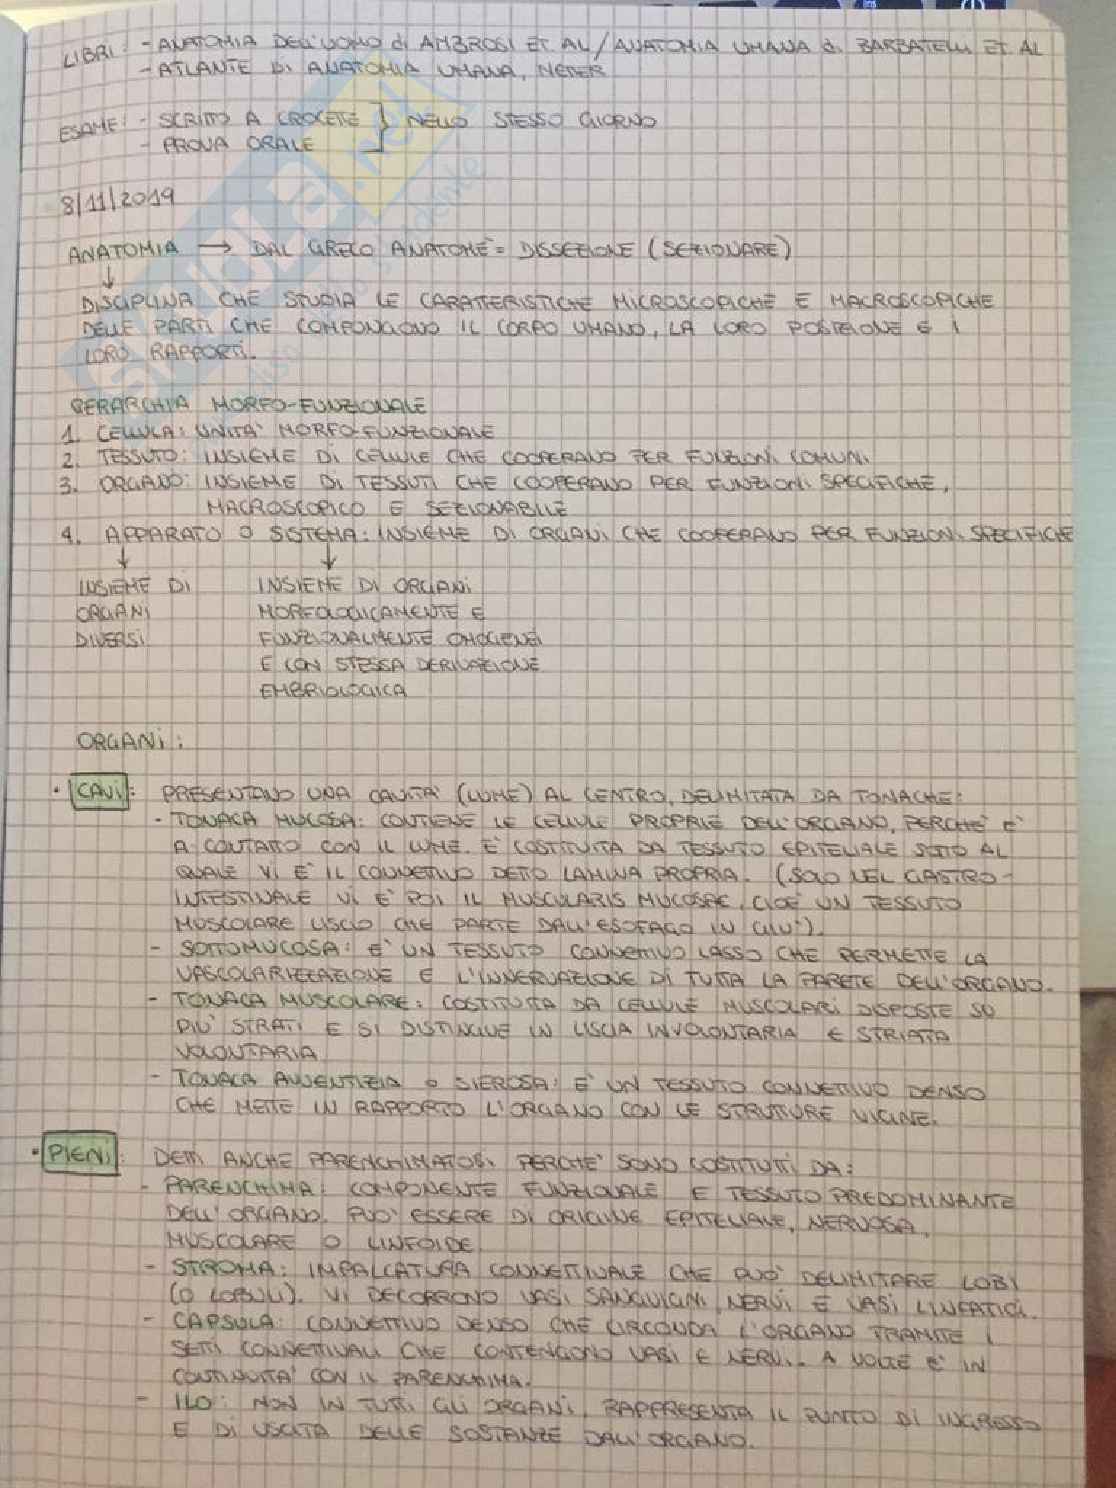 LIBRI: - ANATOMIA DELL'UOMO di AMBROSI ET AL / ANATOMIA UMANA di BARBATELLI ET AL
- ATLANTE DI ANATOMIA UMANA, NETTER
ESAME: - SCRITTO A CROCETTE } NELLO STESSO GIORNO
- PROVA ORALE
8/11/2019
ANATOMIA → DAL GRECO ANATOMÈ = DISSEZIONE (SEZIONARE)
↓
DISCIPLINA CHE STUDIA LE CARATTERISTICHE MICROSCOPICHE E MACROSCOPICHE
DELLE PARTI CHE COMPONGONO IL CORPO UMANO, LA LORO POSIZIONE E I
LORO RAPPORTI.
GERARCHIA MORFO-FUNZIONALE
1. CELLULA: UNITA' MORFO-FUNZIONALE
2. TESSUTO: INSIEME DI CELLULE CHE COOPERANO PER FUNZIONI COMUNI
3. ORGANO: INSIEME DI TESSUTI CHE COOPERANO PER FUNZIONI SPECIFICHE,
MACROSCOPICO E SEZIONABILE
4. APPARATO O SISTEMA: INSIEME DI ORGANI CHE COOPERANO PER FUNZIONI SPECIFICHE
↓ ↓
INSIEME DI INSIEME DI ORGANI
ORGANI MORFOLOGICAMENTE E
DIVERSI FUNZIONALMENTE OMOGENEI
E CON STESSA DERIVAZIONE
EMBRIOLOGICA
ORGANI:
• CAVI: PRESENTANO UNA CAVITA' (LUME) AL CENTRO, DELIMITATA DA TONACHE:
- TONACA MUCOSA: CONTIENE LE CELLULE PROPRIE DELL'ORGANO, PERCHE' E'
A CONTATTO CON IL LUME. E' COSTITUITA DA TESSUTO EPITELIALE SOTTO AL
QUALE VI E' IL CONNETTIVO DETTO LAMINA PROPRIA. (SOLO NEL GASTRO-
INTESTINALE VI E' POI IL MUSCULARIS MUCOSAE, CIOE' UN TESSUTO
MUSCOLARE LISCIO CHE PARTE DALL'ESOFAGO IN GIU').
- SOTTOMUCOSA: E' UN TESSUTO CONNETTIVO LASSO CHE PERMETTE LA
VASCOLARIZZAZIONE E L'INNERVAZIONE DI TUTTA LA PARETE DELL'ORGANO.
- TONACA MUSCOLARE: COSTITUITA DA CELLULE MUSCOLARI DISPOSTE SU
PIU' STRATI E SI DISTINGUE IN LISCIA INVOLONTARIA E STRIATA
VOLONTARIA
- TONACA AVVENTIZIA O SIEROSA: E' UN TESSUTO CONNETTIVO DENSO
CHE METTE IN RAPPORTO L'ORGANO CON LE STRUTTURE VICINE.
• PIENI: DETTI ANCHE PARENCHIMATOSI PERCHE' SONO COSTITUITI DA:
- PARENCHIMA: COMPONENTE FUNZIONALE E TESSUTO PREDOMINANTE
DELL'ORGANO. PUO' ESSERE DI ORIGINE EPITELIALE, NERVOSA,
MUSCOLARE O LINFOIDE
- STROMA: IMPALCATURA CONNETTIVALE CHE PUO' DELIMITARE LOBI
(O LOBULI). VI DECORRONO VASI SANGUIGNI, NERVI E VASI LINFATICI.
- CAPSULA: CONNETTIVO DENSO CHE CIRCONDA L'ORGANO TRAMITE I
SETTI CONNETTIVALI CHE CONTENGONO VASI E NERVI. A VOLTE E' IN
CONTINUITA' CON IL PARENCHIMA.
- ILO: NON IN TUTTI GLI ORGANI, RAPPRESENTA IL PUNTO DI INGRESSO
E DI USCITA DELLE SOSTANZE DALL'ORGANO.